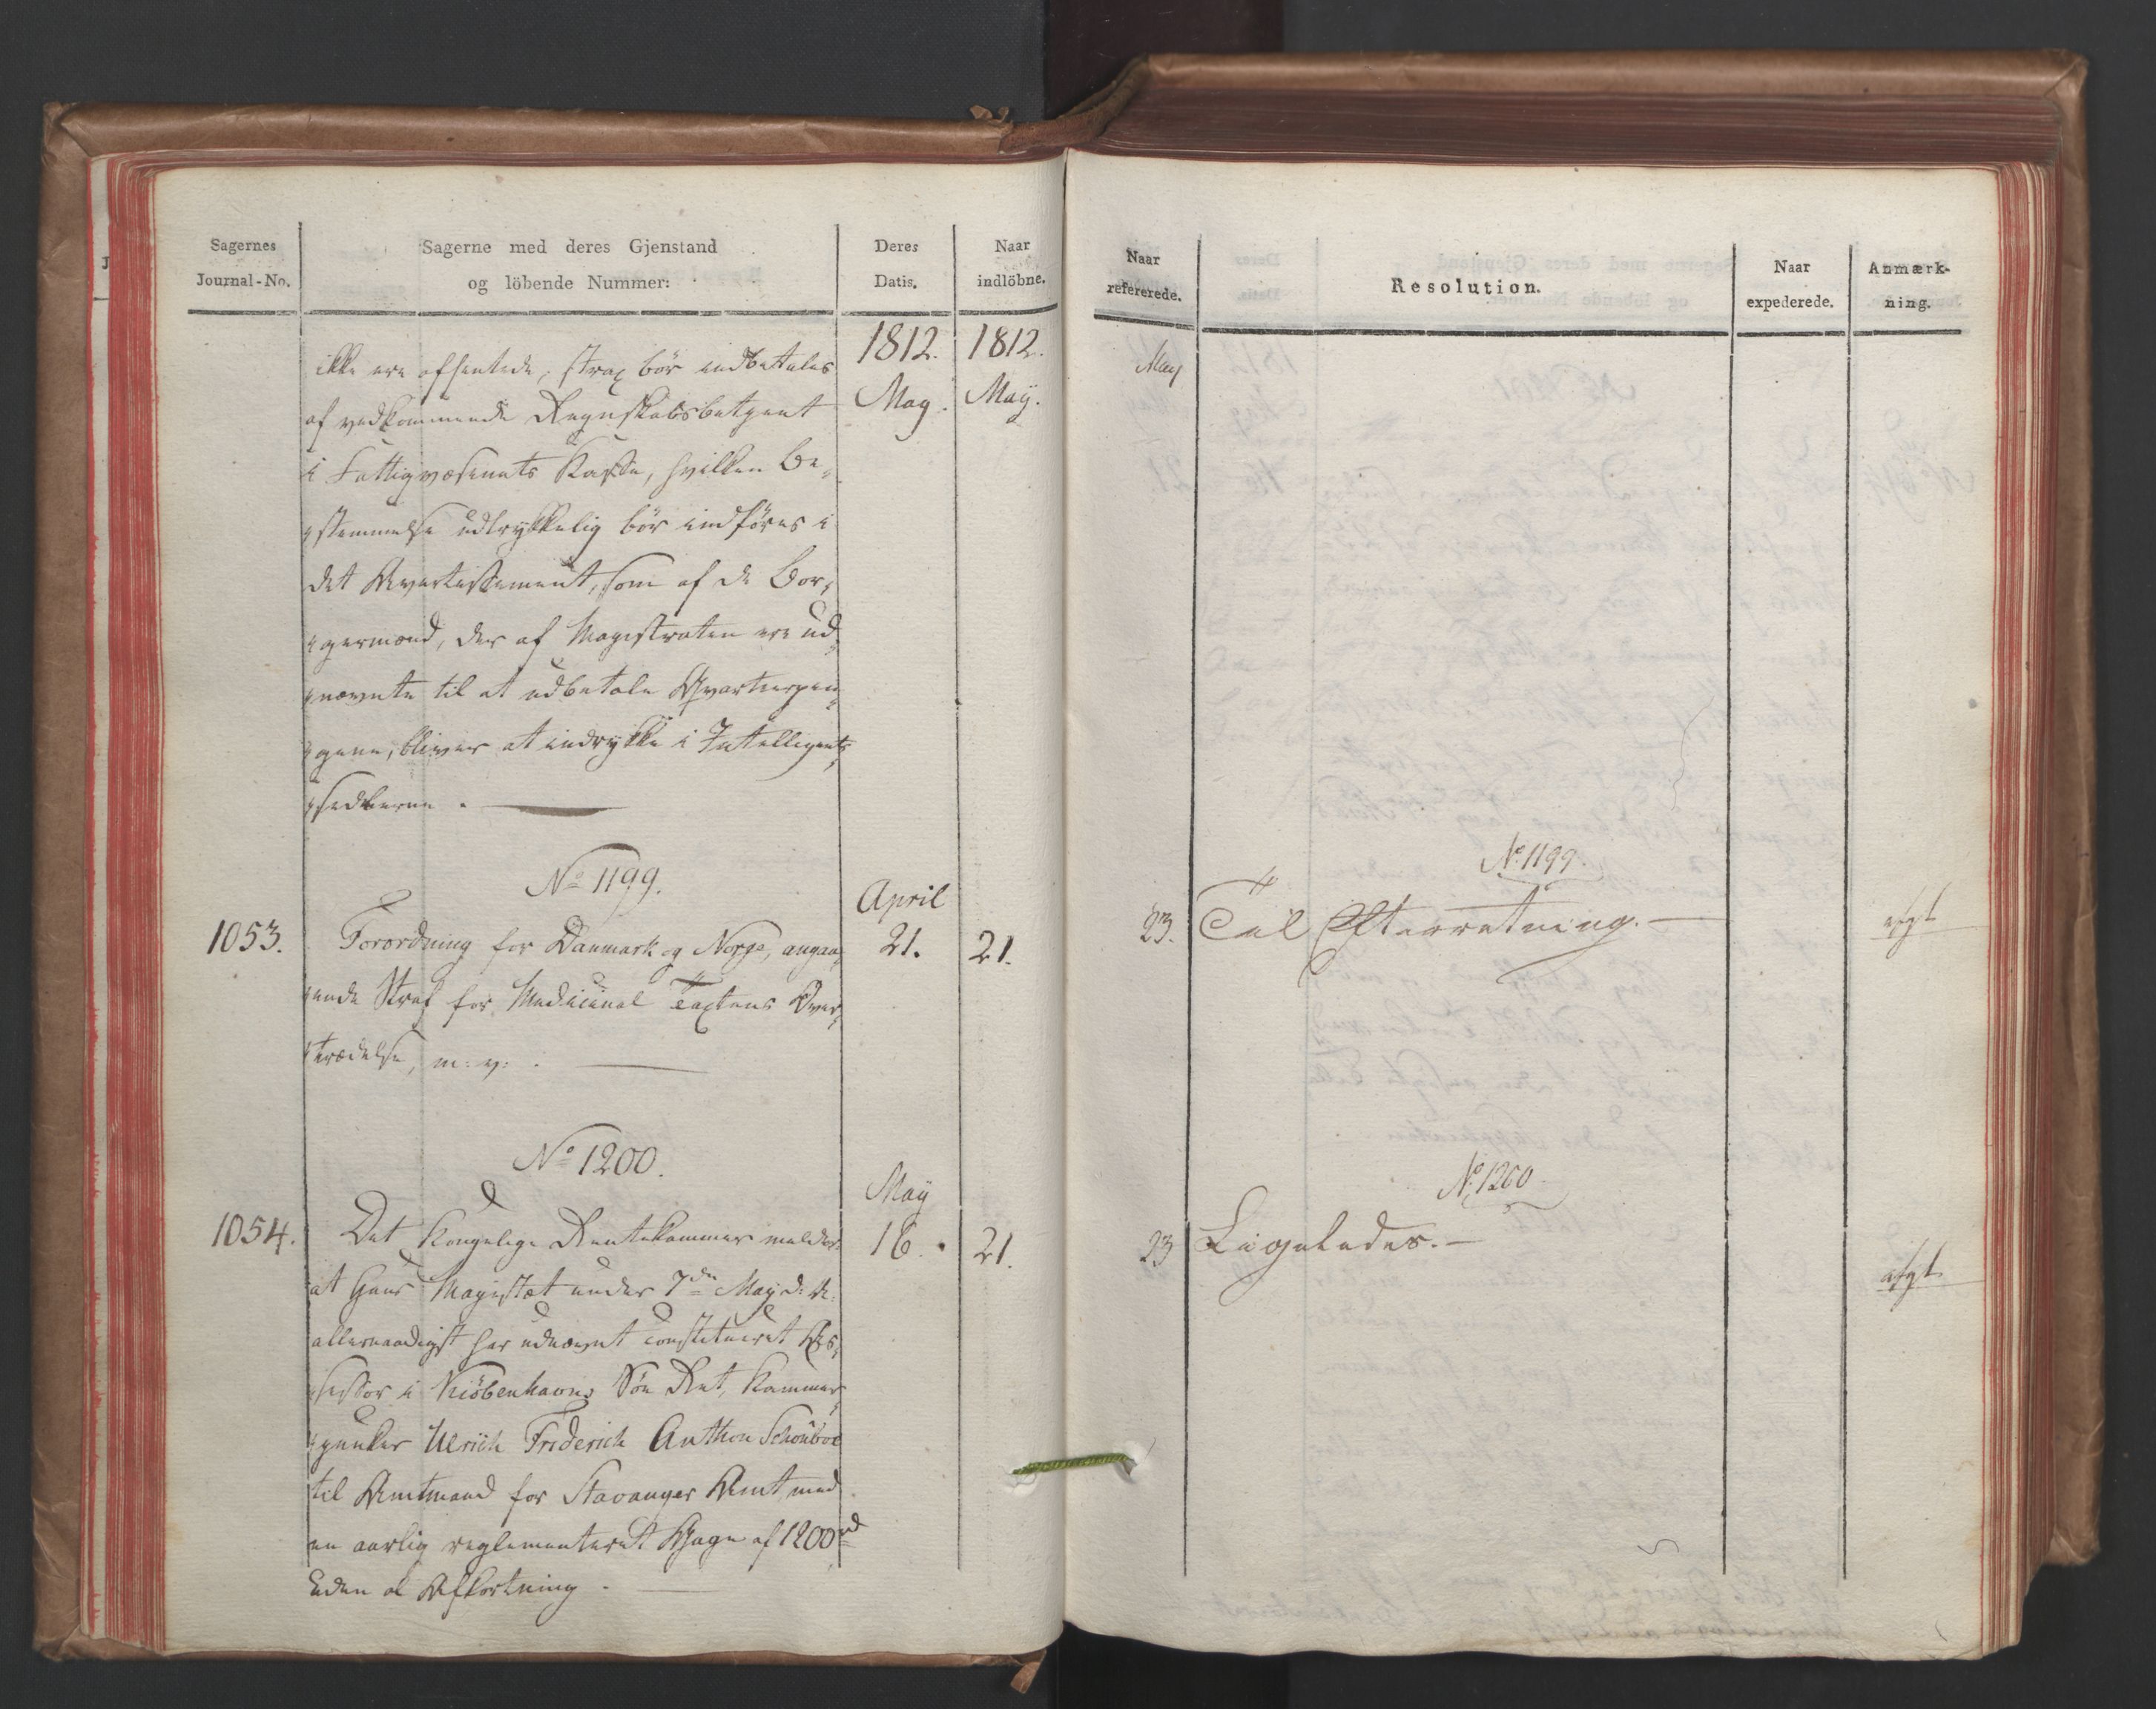 Sagernes
Journal-No.
Sagerne med deres Gjenstand
og löbende Nummer:
Deres
Datis.
Naar
indlöbne.
1812. 1812.
May. May.
ikke ere afhentede, strax bör indbetales
af vedkommende Regnskabsbetient
i Fattigvæsenets Kasse, hvilken Be-
stemmelse udtrykkelig bör indföres i
det Avertissement, som af de Bor-
germænd, der af Magistraten ere ud-
nævnte til at udbetale Qvarteerpen-
gene, bliver at indrykke i Intelligents
sedlerne.
No 1199.
April
1053. Forordning for Danmark og Norge, angaa- 21. 21.
ende Straf for Medicinal Taxtens Over-
trædelse, m: v:
No 1200.
May
1054. Det Kongelige Rentekammer melder 16. 21.
at Hans Majestæt under 7de May d: A:
allernaadigst har udnævnt constitueret As-
sessor i Kiöbenhavns Söe Ret, Kammer-
junker Ulrich Friderich Anthon Schouboe
til Amtmand for Stavanger Amt med
en aarlig reglementeret Gage af 1200 rd
uden al Afkortning.
Naar
refererede.
Resolution.
Naar
expederede.
Anmærk-
ning.
May
No 1199.
23. Til Efterretning. afgt
No 1200.
23 Ligeledes. afgt